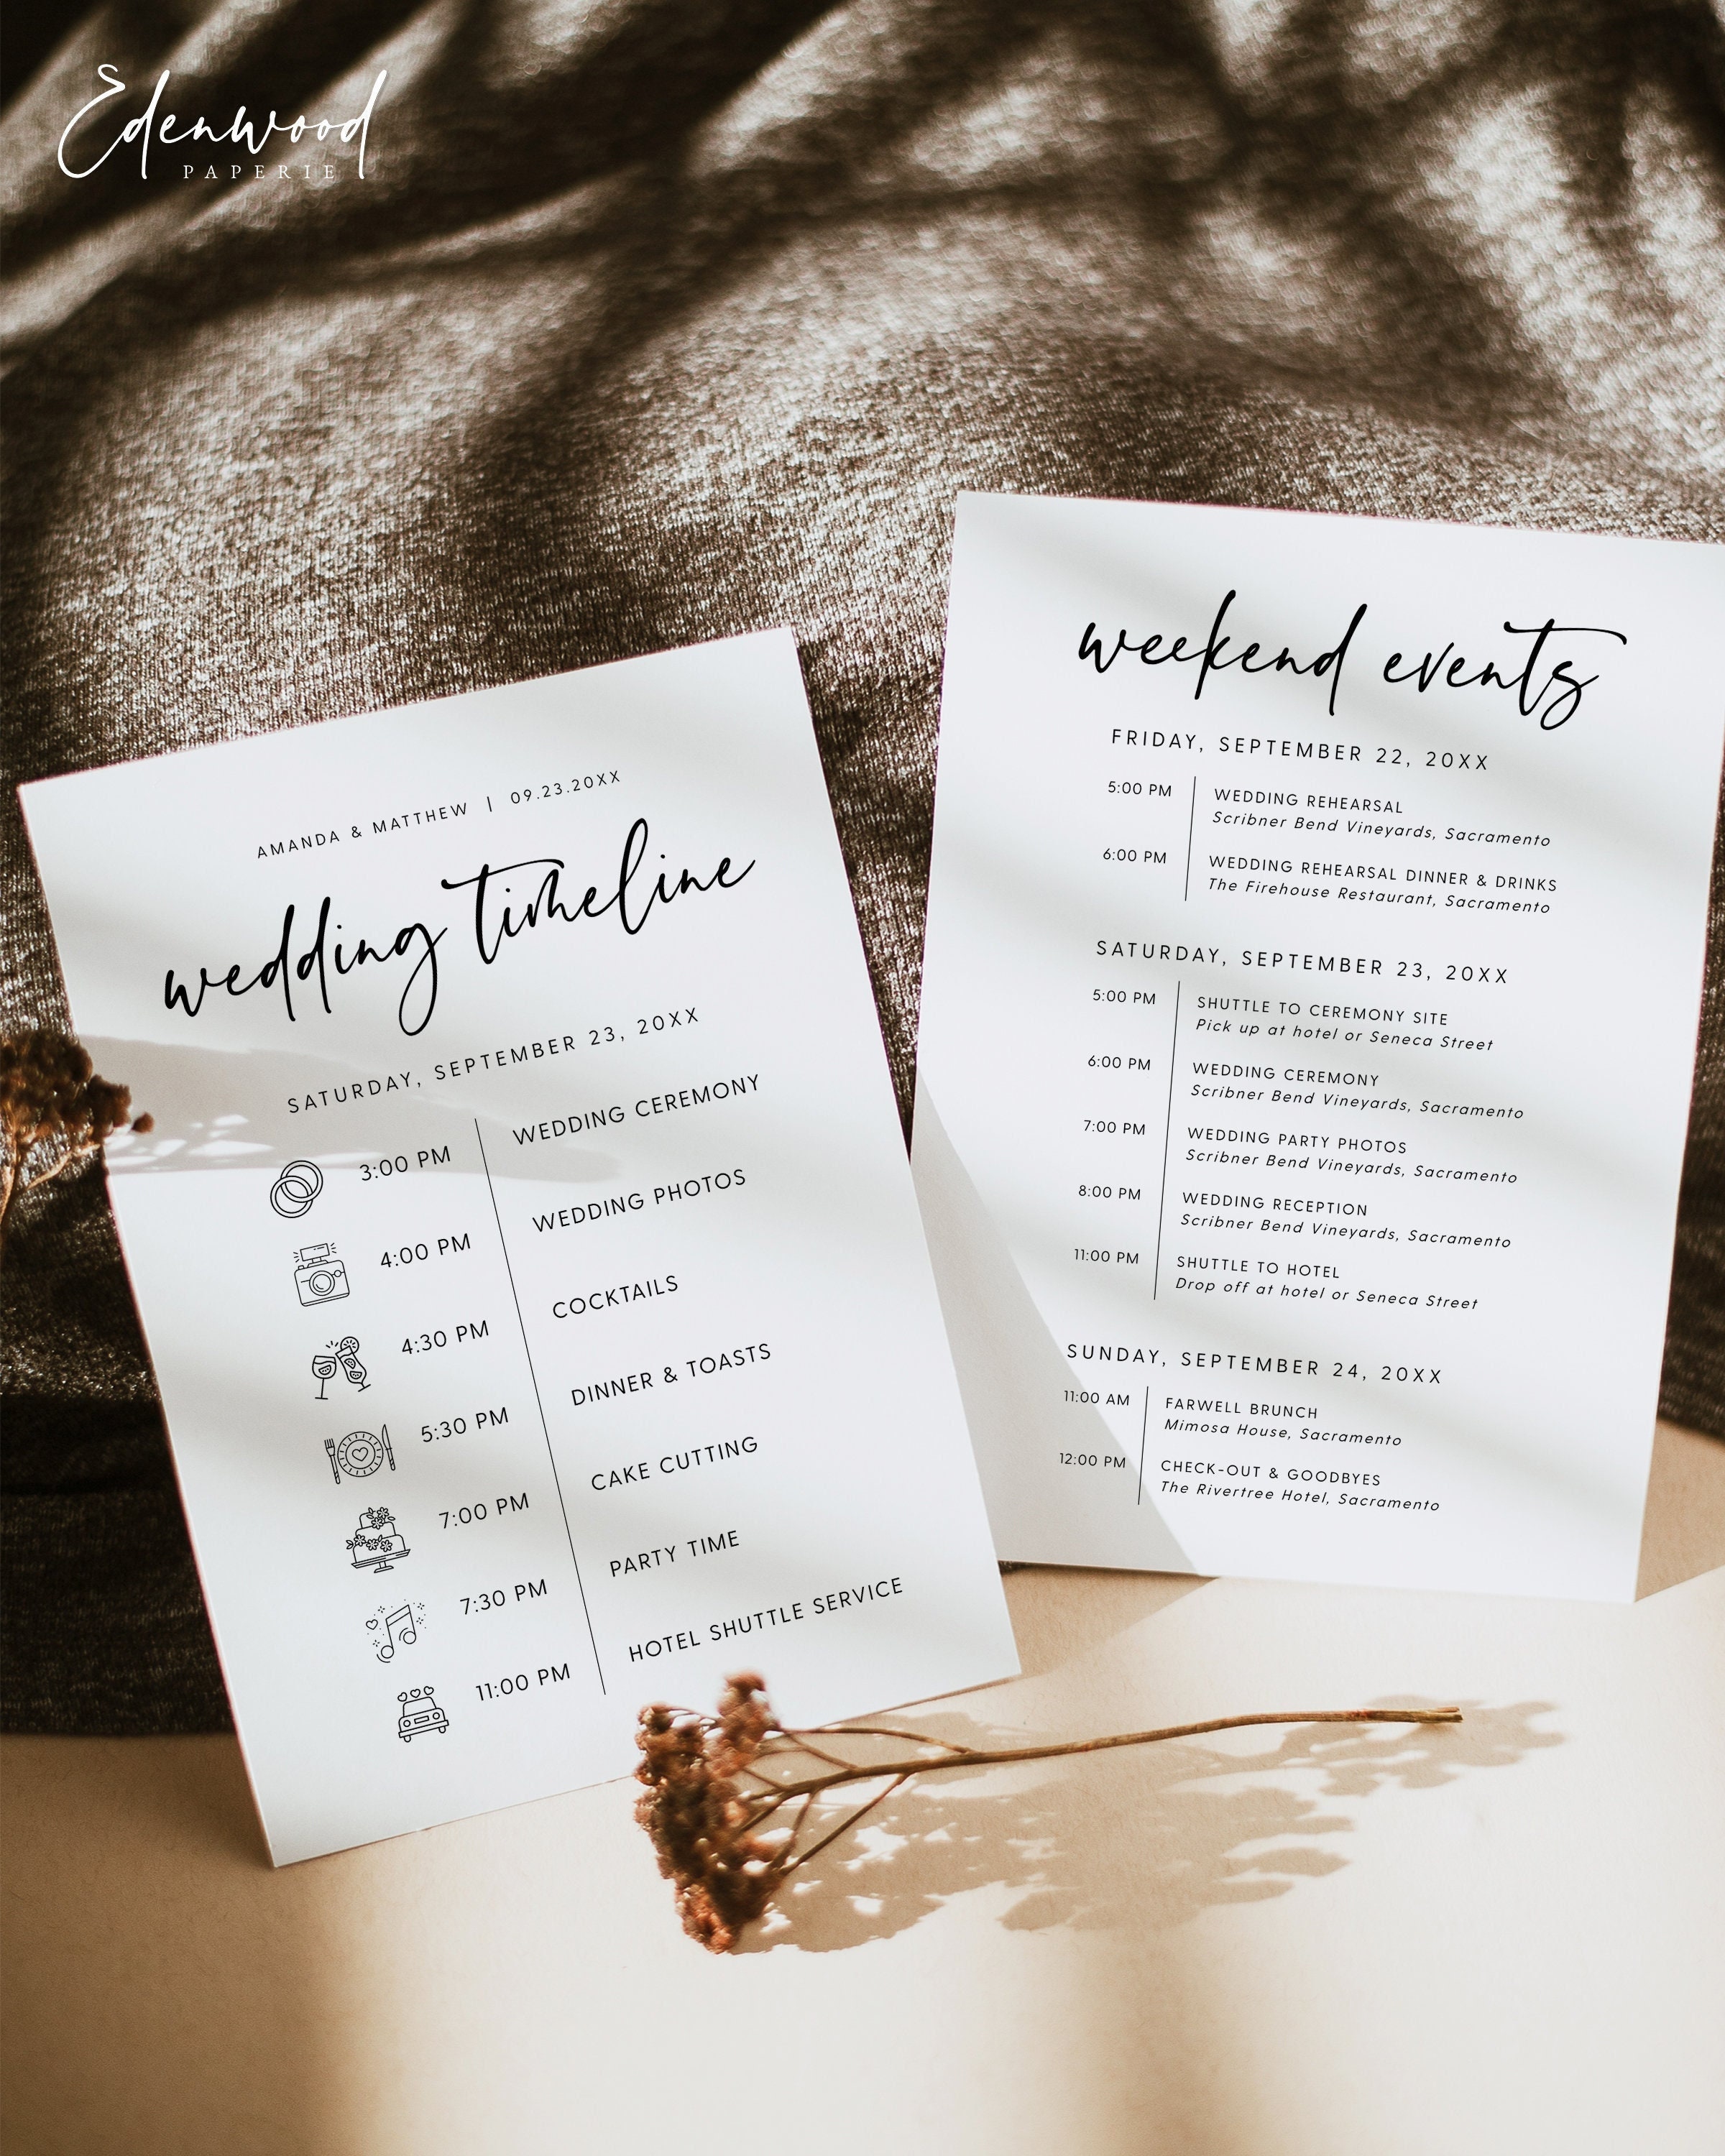 Edenwood
PAPERIE
AMANDA & MATTHEW | 09.23.20XX
wedding timeline
SATURDAY, SEPTEMBER 23, 20XX
3:00 PM WEDDING CEREMONY
4:00 PM WEDDING PHOTOS
4:30 PM COCKTAILS
5:30 PM DINNER & TOASTS
7:00 PM CAKE CUTTING
7:30 PM PARTY TIME
11:00 PM HOTEL SHUTTLE SERVICE
weekend events
FRIDAY, SEPTEMBER 22, 20XX
5:00 PM WEDDING REHEARSAL
Scribner Bend Vineyards, Sacramento
6:00 PM WEDDING REHEARSAL DINNER & DRINKS
The Firehouse Restaurant, Sacramento
SATURDAY, SEPTEMBER 23, 20XX
5:00 PM SHUTTLE TO CEREMONY SITE
Pick up at hotel or Seneca Street
6:00 PM WEDDING CEREMONY
Scribner Bend Vineyards, Sacramento
7:00 PM WEDDING PARTY PHOTOS
Scribner Bend Vineyards, Sacramento
8:00 PM WEDDING RECEPTION
Scribner Bend Vineyards, Sacramento
11:00 PM SHUTTLE TO HOTEL
Drop off at hotel or Seneca Street
SUNDAY, SEPTEMBER 24, 20XX
11:00 AM FARWELL BRUNCH
Mimosa House, Sacramento
12:00 PM CHECK-OUT & GOODBYES
The Rivertree Hotel, Sacramento